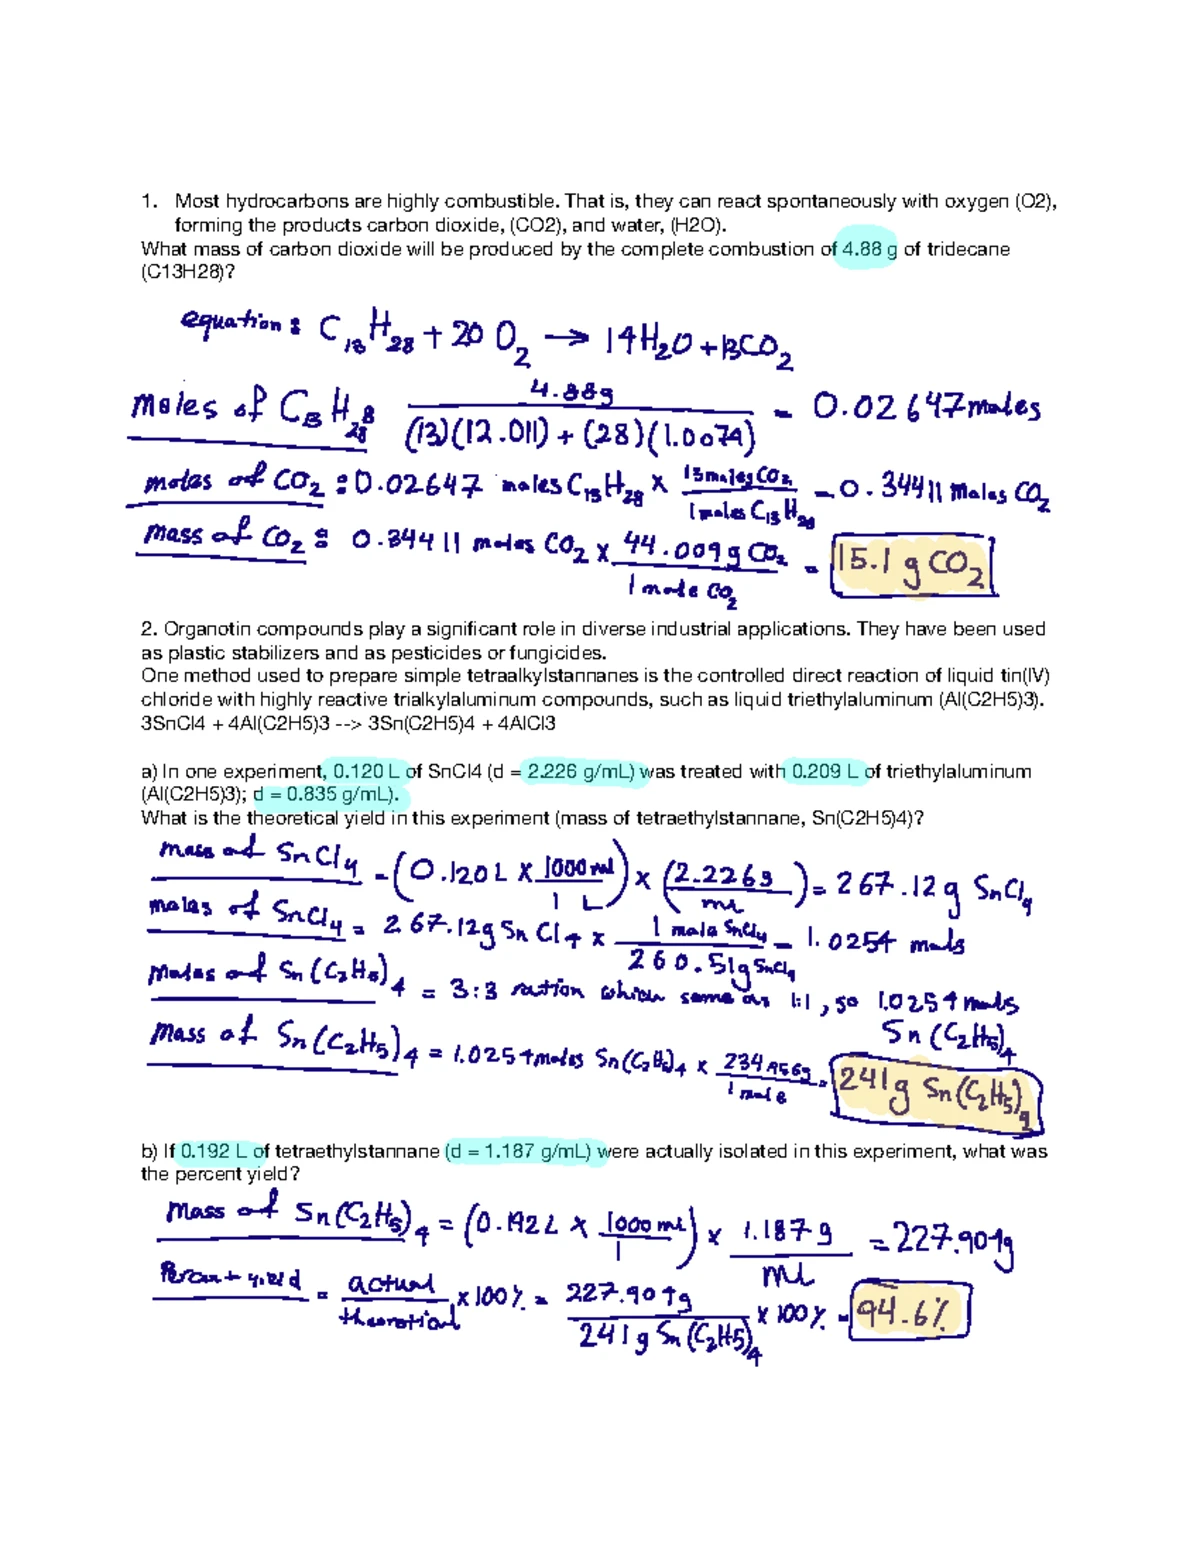 1. Most hydrocarbons are highly combustible. That is, they can react spontaneously with oxygen (O2),
forming the products carbon dioxide, (CO2), and water, (H2O).
What mass of carbon dioxide will be produced by the complete combustion of 4.88 g of tridecane
(C13H28)?
equation: C13H28 + 20 O2 → 14H2O + 13CO2
moles of C13H28 4.88g / (13)(12.011) + (28)(1.0074) = 0.02647 moles
moles of CO2 : 0.02647 moles C13H28 x 13 moles CO2 / 1 moles C13H28 = 0.34411 moles CO2
mass of CO2 : 0.34411 moles CO2 x 44.009 g CO2 / 1 mole CO2 = 15.1 g CO2
2. Organotin compounds play a significant role in diverse industrial applications. They have been used
as plastic stabilizers and as pesticides or fungicides.
One method used to prepare simple tetraalkylstannanes is the controlled direct reaction of liquid tin(IV)
chloride with highly reactive trialkylaluminum compounds, such as liquid triethylaluminum (Al(C2H5)3).
3SnCl4 + 4Al(C2H5)3 --> 3Sn(C2H5)4 + 4AlCl3
a) In one experiment, 0.120 L of SnCl4 (d = 2.226 g/mL) was treated with 0.209 L of triethylaluminum
(Al(C2H5)3); d = 0.835 g/mL).
What is the theoretical yield in this experiment (mass of tetraethylstannane, Sn(C2H5)4)?
mass of SnCl4 = (0.120 L x 1000 ml / 1 L) x (2.226g / mL) = 267.12 g SnCl4
moles of SnCl4 = 267.12g SnCl4 x 1 mole SnCl4 / 260.51g SnCl4 = 1.0254 mols
Moles of Sn(C2H5)4 = 3:3 ration which same as 1:1, so 1.0254 mols
Sn(C2H5)4
Mass of Sn(C2H5)4 = 1.0254 moles Sn(C2H5)4 x 234.956g / 1 mole = 241g Sn(C2H5)4
b) If 0.192 L of tetraethylstannane (d = 1.187 g/mL) were actually isolated in this experiment, what was
the percent yield?
Mass of Sn(C2H5)4 = (0.192 L x 1000 ml / 1) x 1.187 g / ml = 227.904g
Percent yield = actual / theoretical x 100% = 227.904g / 241 g Sn(C2H5)4 x 100% = 94.6%